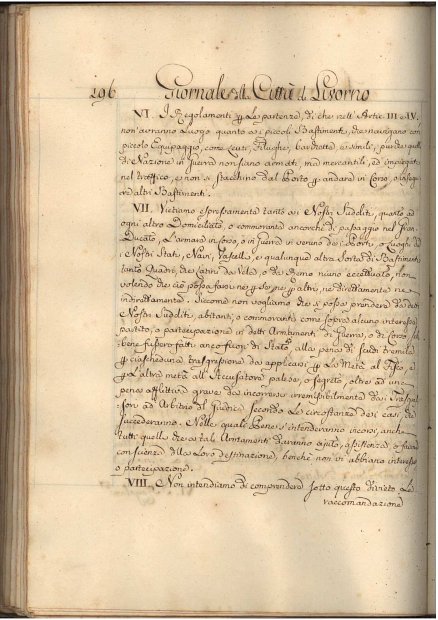 196 Giornale della Città di Livorno
VI. I Regolamenti per le partenze, di che nell' Artic. III e IV.
non avranno luogo quanto ai piccoli Bastimenti, che navigano con
piccolo Equipaggio, come Leuti, Filughe, e simili, purché quelli
di Nazione in guerra non siano armati, ma mercantili, ed impiegati
nel traffico, e non si stacchino dal Porto per andare in Corso, o inseguire
altri Bastimenti.
VII. Vietiamo espressamente tanto ai Nostri Sudditi, quanto ad
ogni altro Domiciliato, o commorante ancorché di passaggio nel Gran-
Ducato, l'armare in Corso, o in guerra in veruno dei Porti, o Luoghi de'
Nostri Stati, Navi, Vascelli, e qualunque altra sorta di Bastimenti
tanto Quadri, che Latini da Vela, o da Remo niuno eccettuato, non
volendo che ciò possa farsi né per se, né per altri, né direttamente né
indirettamente. Siccome non vogliamo che si possa prendere da detti
Nostri Sudditi, abitanti, o commoranti come sopra alcuno interesse,
partito, o partecipazione in detti Armamenti di Guerra, o di Corso, seb-
bene fussero fatti anco fuori di Stato alla pena di scudi tremila
per ciascheduna trasgressione da applicarsi per la Metà al Fisco, e
per l'altra metà all' Accusatore palese, o segreto, oltre ad una
pena afflittiva grave da incorrersi irremissibilmente dai Trasgres-
sori ad Arbitrio del Giudice secondo le circostanze dei casi, che
succederanno. Nelle quali Pene s'intenderanno incorsi, anche
tutti quelli che a tali Armamenti daranno ajuto, assistenza, o
della loro destinazione, benché non vi abbiano interesse,
o partecipazione.
VIII. Non intendiamo di comprendere sotto questo divieto le
raccomandazione